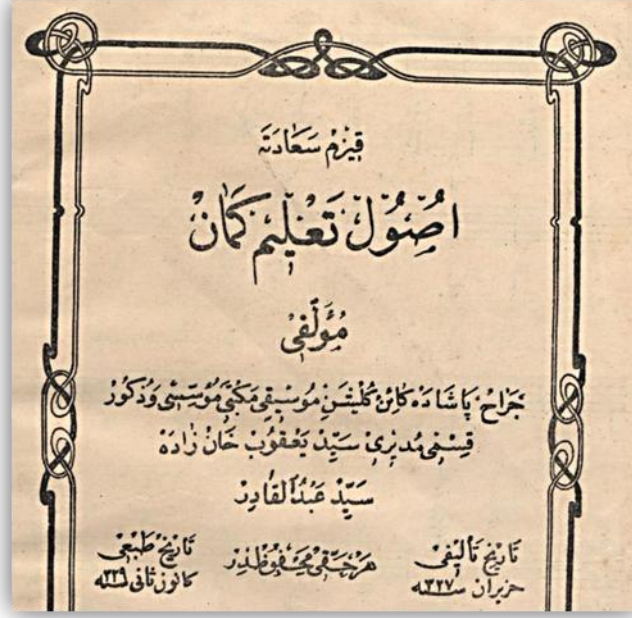 قیزم سعادته
اصول تعلیم كمان
مؤلفی
جراح پاشاده كائن كلیشن موسیقی مكتبی مؤسسی و ذكور
قسمی مدیری سید یعقوب خان زاده
سید عبدالقادر
تاریخ تألیفی هر حقی محفوظدر تاریخ طبعی
حزیران سنه ٣٢٧ كانون ثانی سنه ٣٢٩